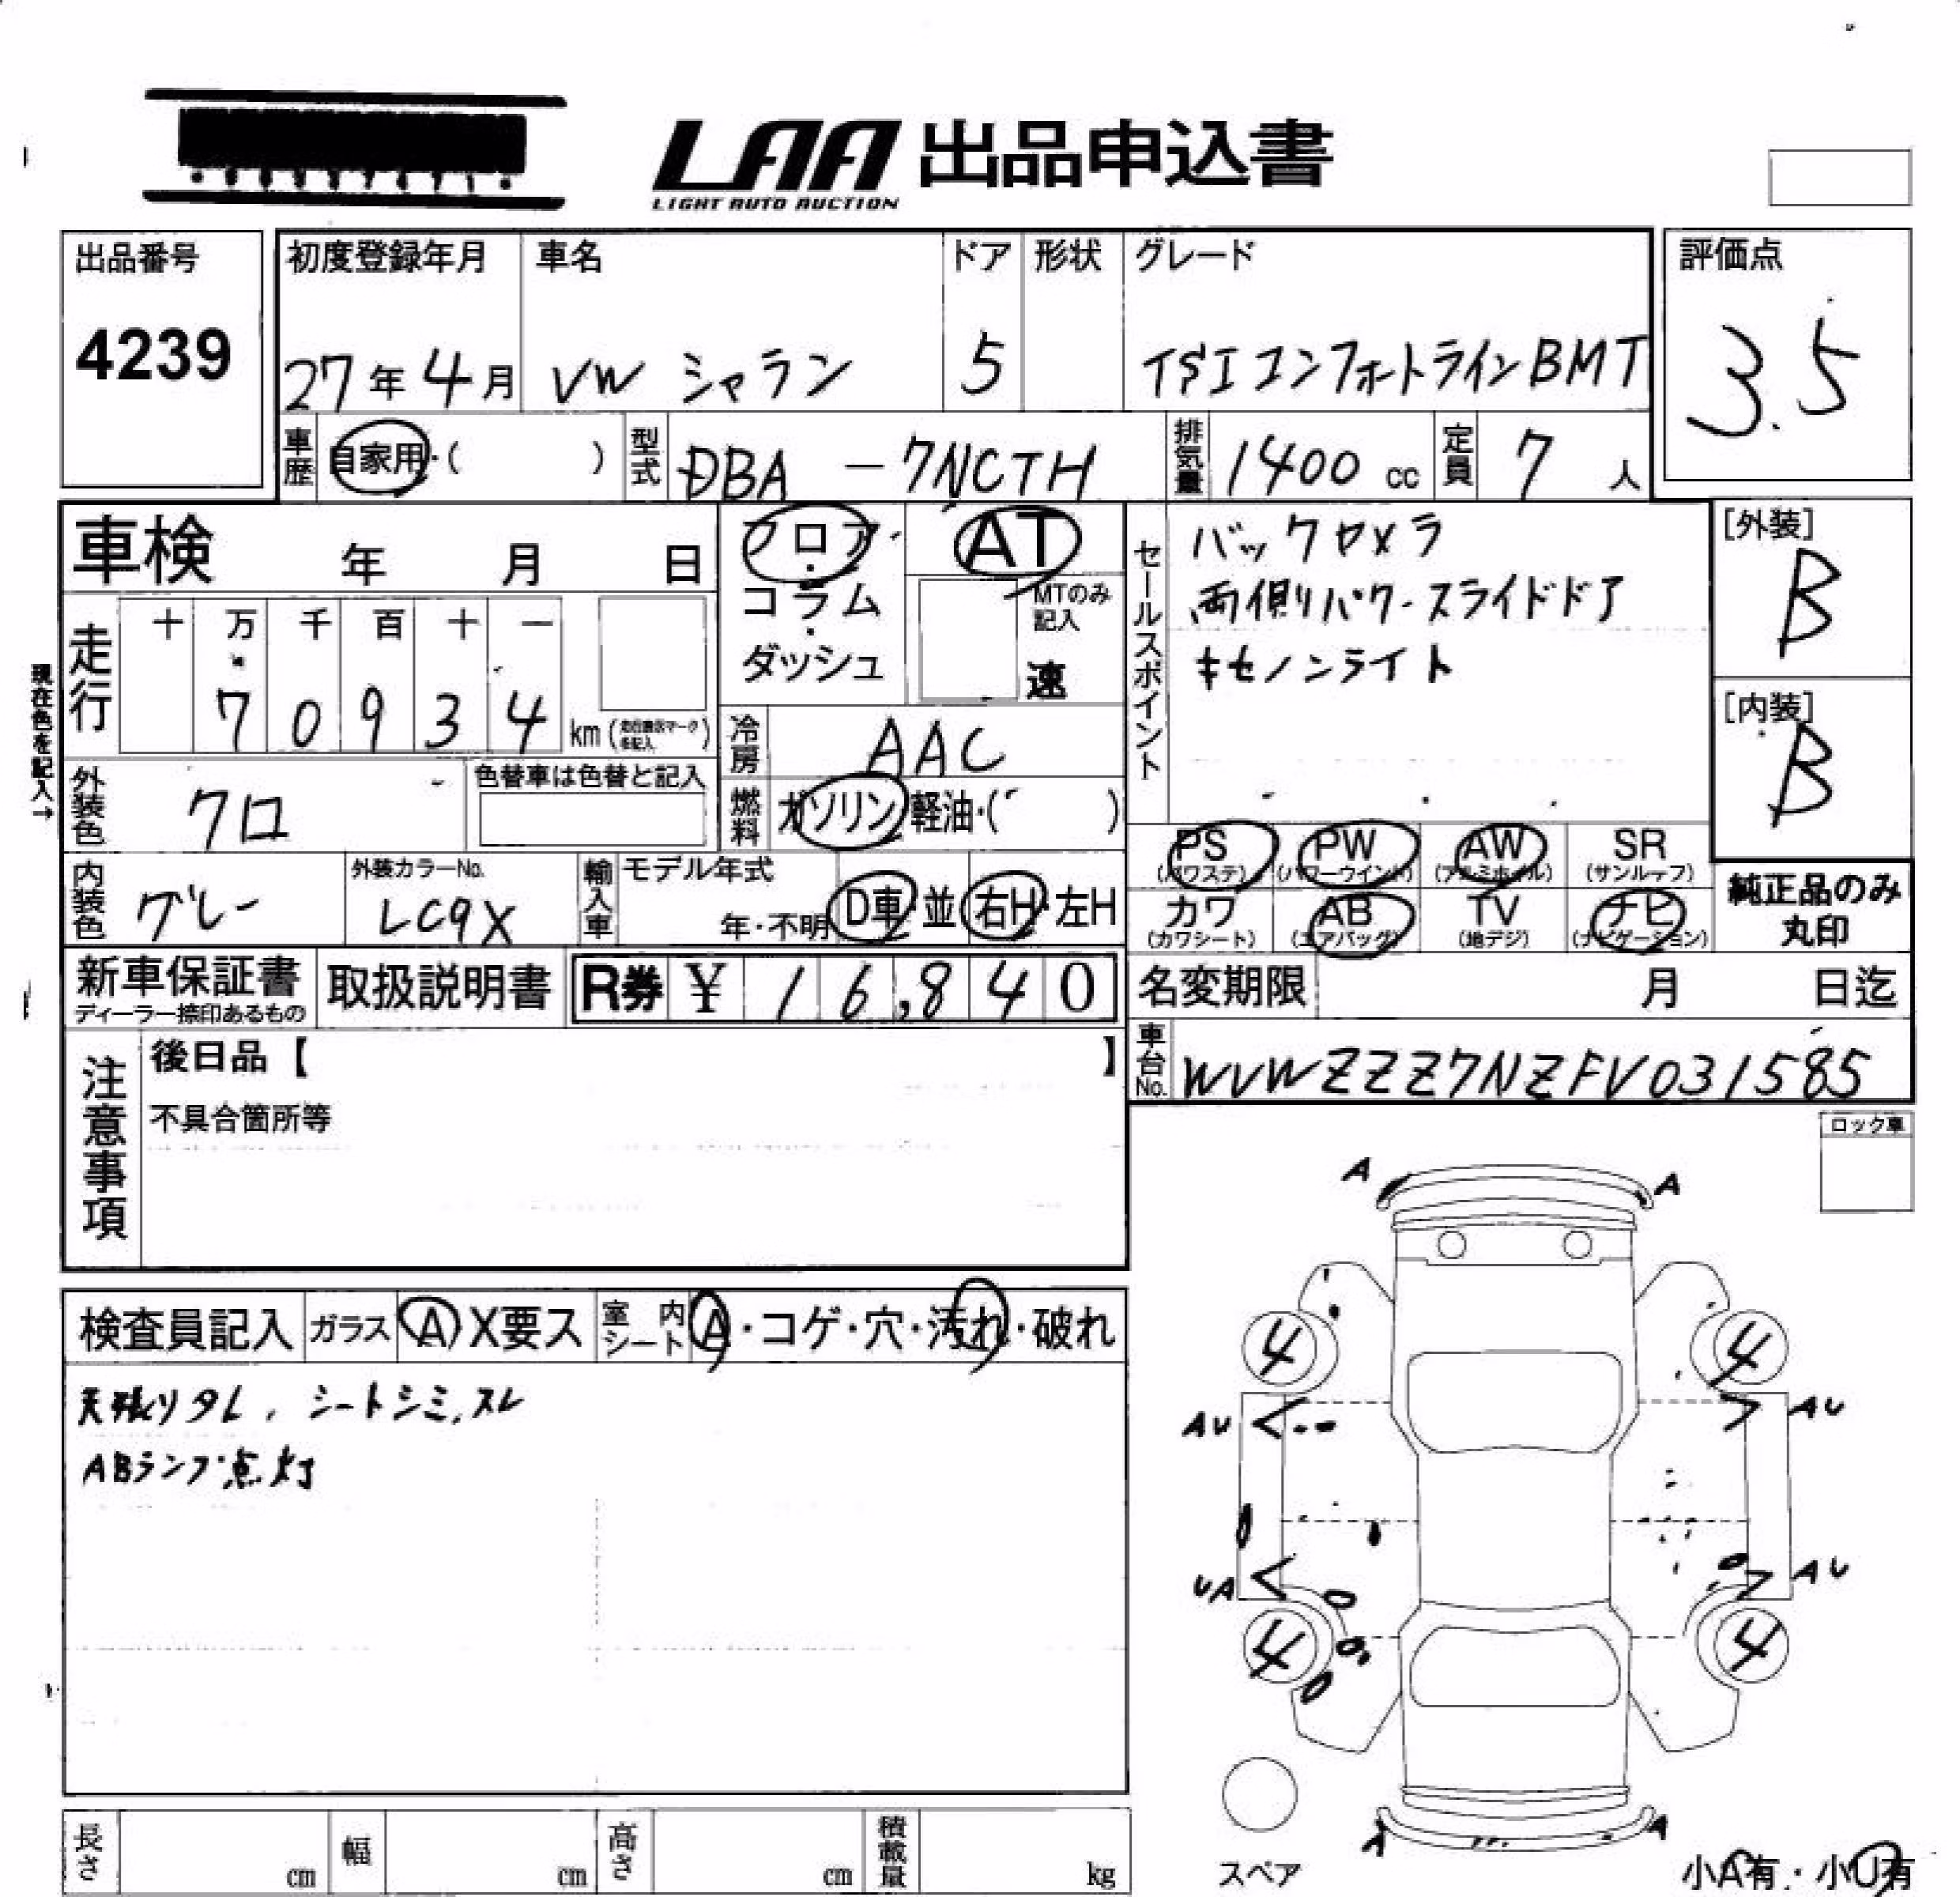 LAA 出品申込書
LIGHT AUTO AUCTION
出品番号
4239
初度登録年月
27年4月
車名
VW シャラン
ドア
5
形状
グレード
TSI コンフォートラインBMT
評価点
3.5
車歴 自家用・( )
型式 DBA -7NCTH
排気量 1400 cc
定員 7 人
車検 年 月 日
走行
十 万 千 百 十 一
7 0 9 3 4
km
現在色を記入→
外装色 クロ
色替車は色替と記入
内装色 グレー
外装カラーNo.
LC9X
フロア・
コラム
・
ダッシュ
AT
MTのみ
記入
速
冷房 AAC
燃料 ガソリン 軽油・( )
輸入車
モデル年式
年・不明
D車・並
右H・左H
セールスポイント
バックカメラ
両側パワースライドドア
キセノンライト
[外装]
B
[内装]
B
PS
(パワステ)
PW
(パワーウインド)
AW
(アルミホイル)
SR
(サンルーフ)
カワ
(カワシート)
AB
(エアバッグ)
TV
(地デジ)
ナビ
(ナビゲーション)
純正品のみ
丸印
新車保証書
ディーラー捺印あるもの
取扱説明書
R券 ¥ 16,840
名変期限 月 日迄
車台No. WVWZZZ7NZFV031585
注意事項
後日品【 】
不具合箇所等
ロック車
検査員記入
ガラス A X要ス
室内シート A・コゲ・穴・汚れ・破れ
天張りタレ、シートシミ、スレ
ABランプ点灯
A A
4 4
AU AU
UA AU
4 4
A A
スペア
小A有・小U有
長さ cm
幅 cm
高さ cm
積載量 kg